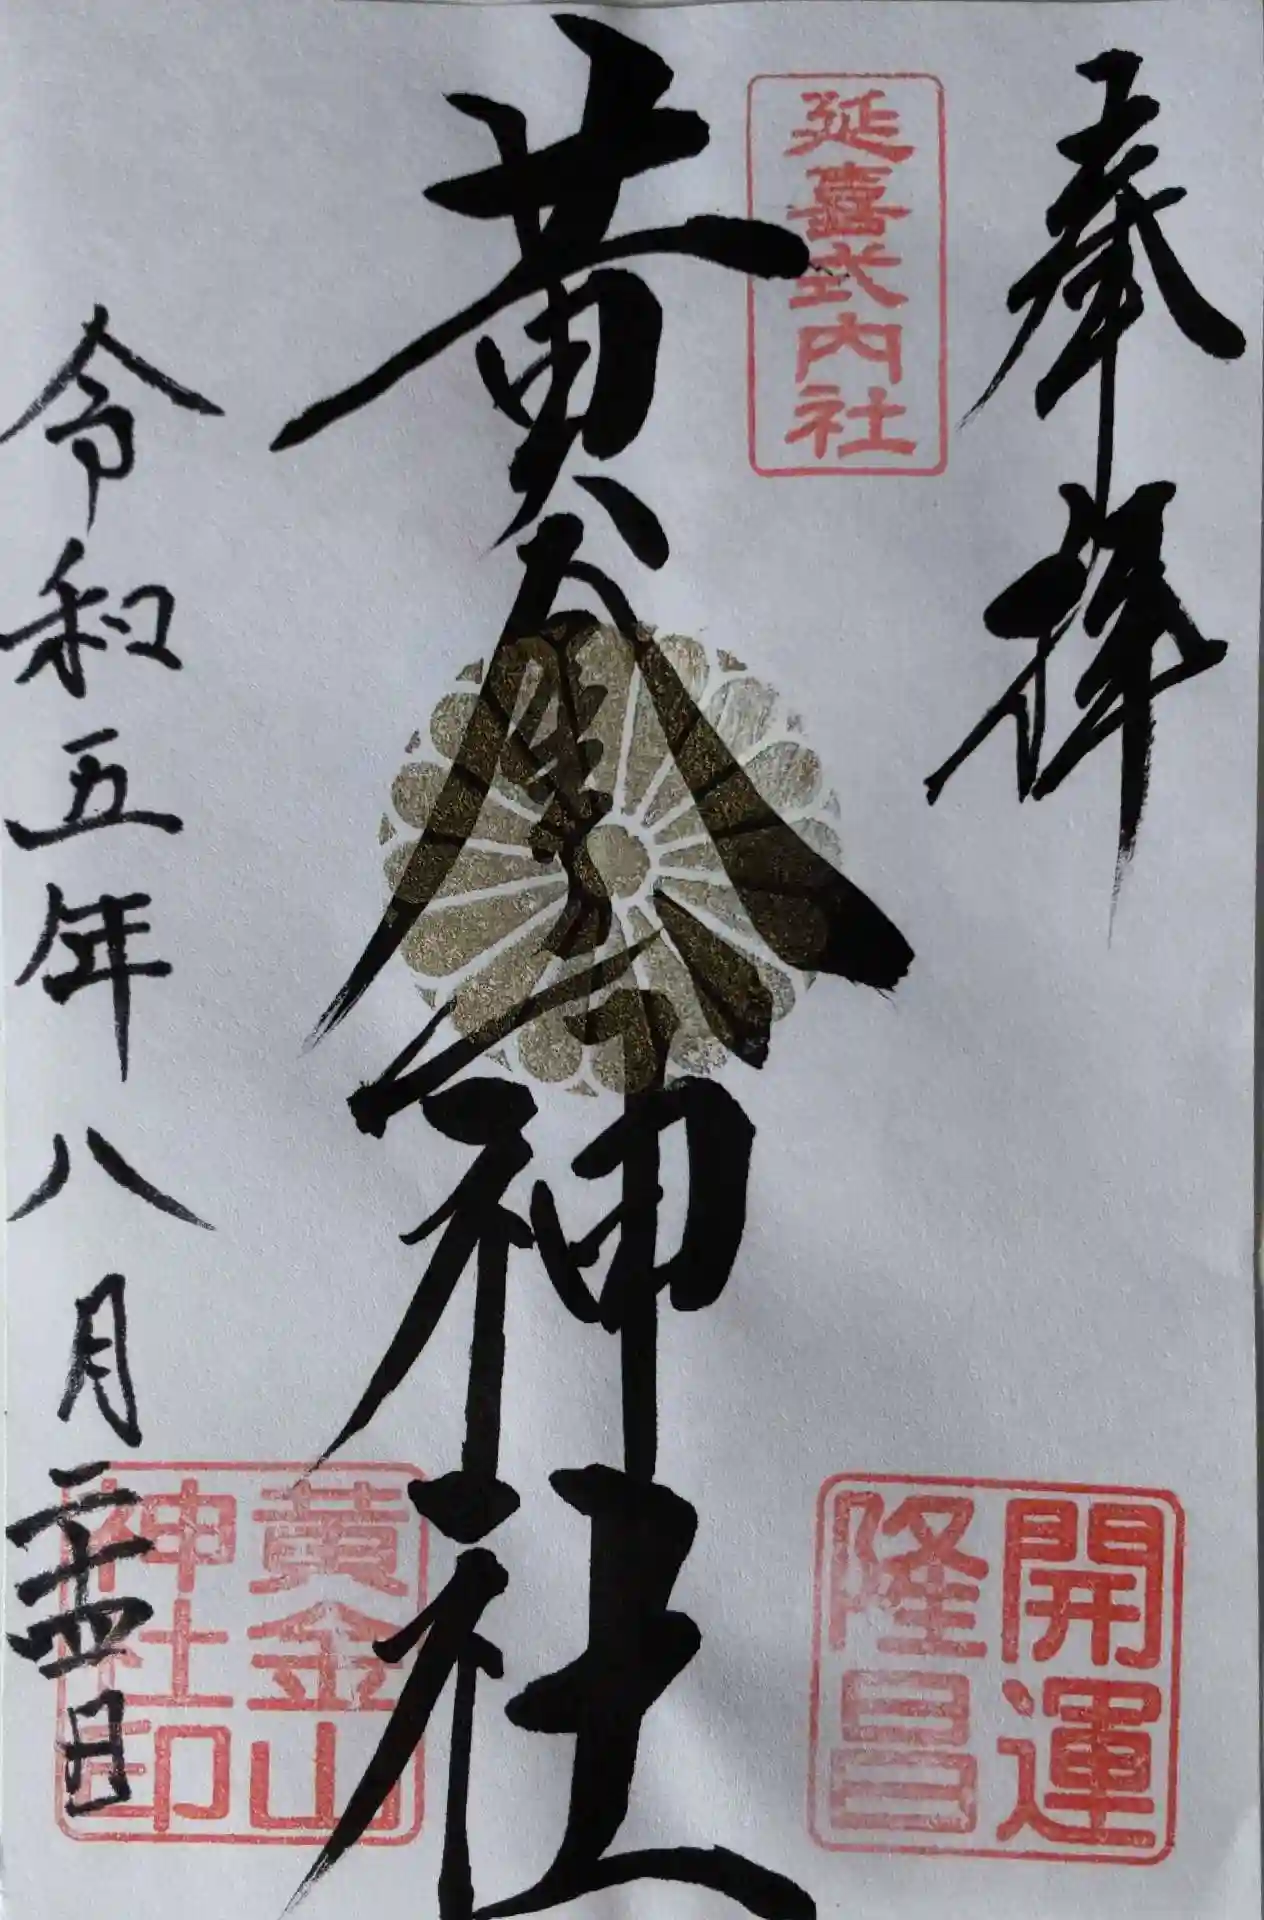 奉拝
延喜式内社
開運
隆昌
黄金神社
黄金山
神社印
令和五年八月二十四日